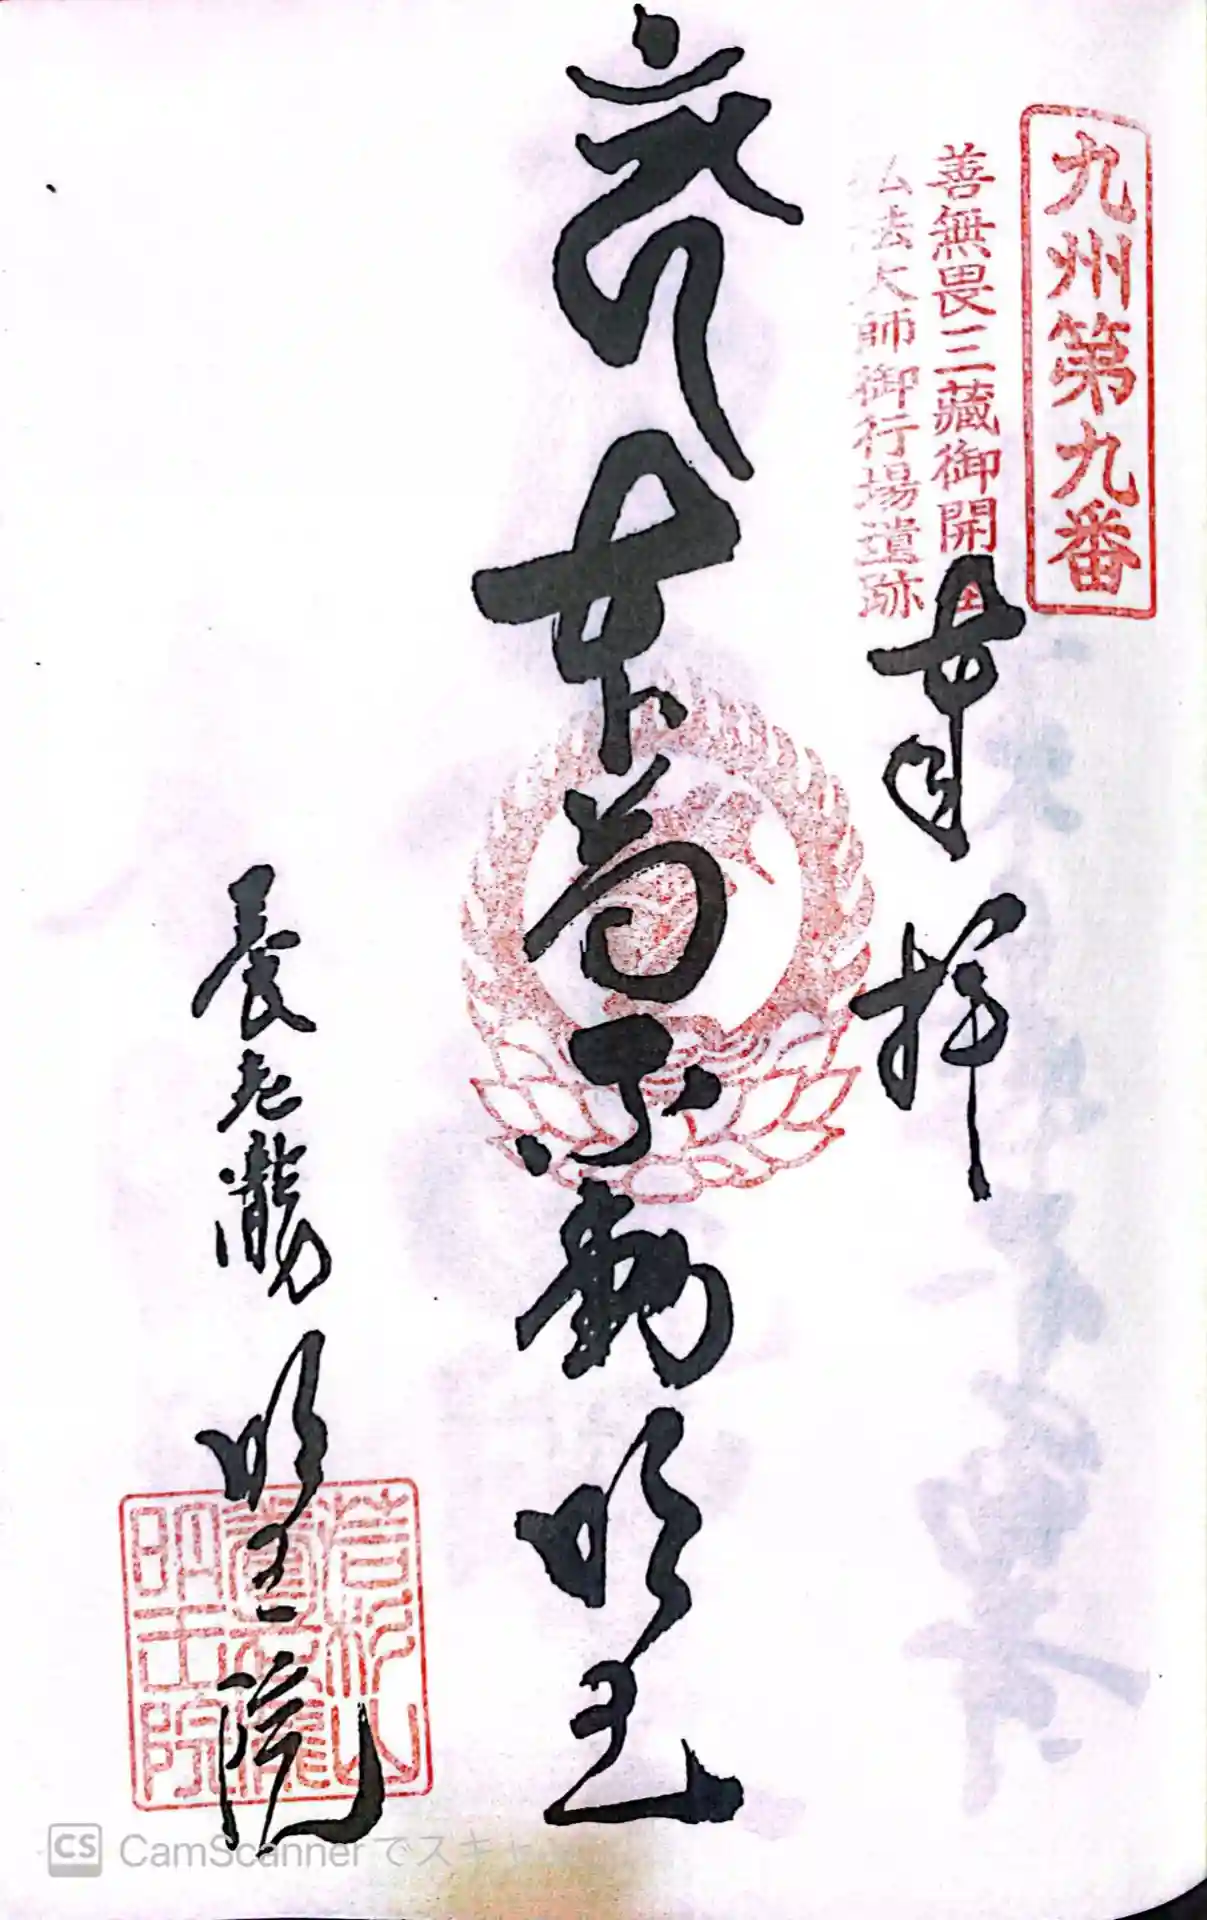 九州第九番
善無畏三藏御開
弘法大師御行場遺跡
奉拝
本尊不動明王
養老瀧
明王院
明王院
CS CamScannerでスキャ